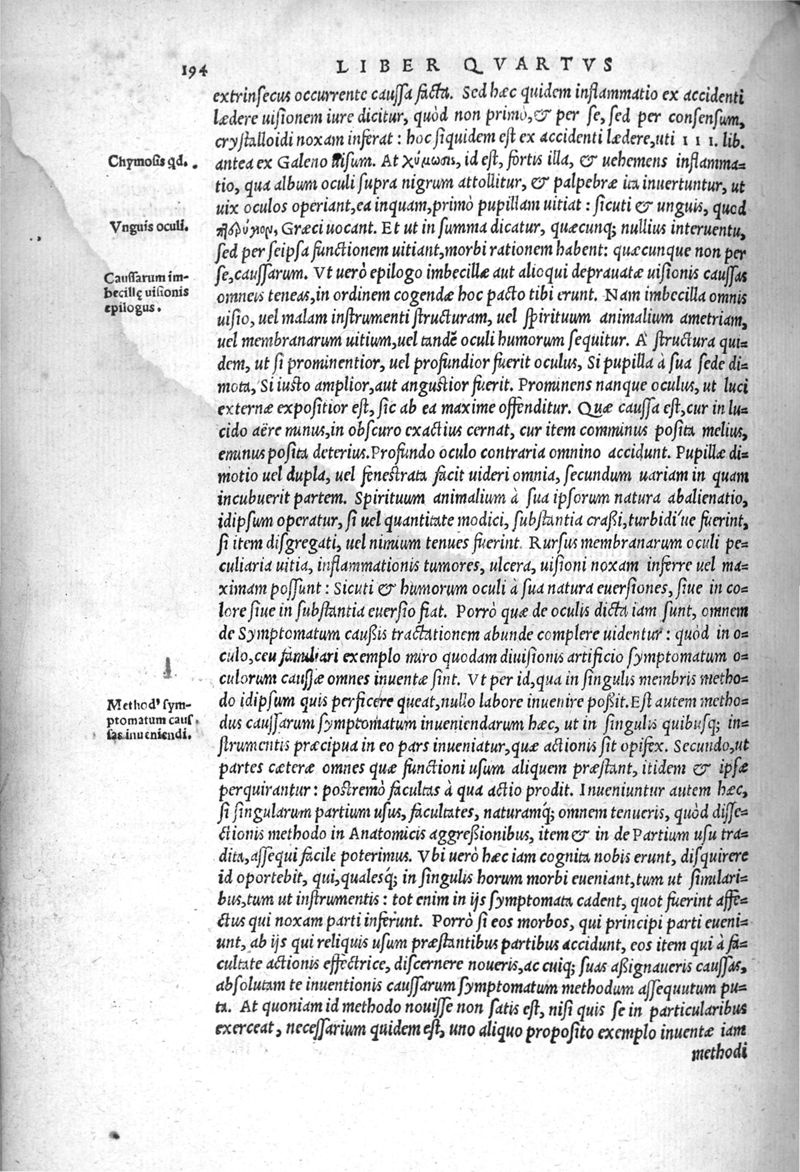 194
LIBER QVARTVS
extrinsecus occurrente caussa facta. Sed hæc quidem inflammatio ex accidenti
lædere uisionem iure dicitur, quòd non primo, & per se, sed per consensum,
crystalloidi noxam inferat : hoc siquidem est ex accidenti lædere, uti III. lib.
Chymosis qd.
antea ex Galeno uisum. At χύμωσις, id est, fortis illa, & uehemens inflamma=
tio, qua album oculi supra nigrum attollitur, & palpebræ ita inuertuntur, ut
uix oculos operiant, ea inquam, primò pupillam uitiat : sicuti & unguis, quod
Vnguis oculi.
πτερύγιον, Græci uocant. Et ut in summa dicatur, quæcunq; nullius interuentu,
sed per seipsa functionem uitiant, morbi rationem habent: quæcunque non per
Caussarum im-
becillę uisionis
epilogus.
se, caussarum. Vt uerò epilogo imbecillæ aut alioqui deprauatæ uisionis caussas
omneis teneas, in ordinem cogendæ hoc pacto tibi erunt. Nam imbecilla omnis
uisio, uel malam instrumenti structuram, uel spirituum animalium ametriam,
uel membranarum uitium, uel tandẽ oculi humorum sequitur. A structura qui=
dem, ut si prominentior, uel profundior fuerit oculus, Si pupilla à sua sede di=
mota, Si iusto amplior, aut angustior fuerit. Prominens nanque oculus, ut luci
externæ expositior est, sic ab ea maxime offenditur. Quæ caussa est, cur in lu=
cido aëre minus, in obscuro exactius cernat, cur item comminus posita melius,
eminus posita deterius. Profundo oculo contraria omnino accidunt. Pupillæ di=
motio uel dupla, uel fenestrata facit uideri omnia, secundum uariam in quam
incubuerit partem. Spirituum animalium à sua ipsorum natura abalienatio,
idipsum operatur, si uel quantitate modici, substantia crassi, turbidi'ue fuerint,
si item disgregati, uel nimium tenues fuerint. Rursus membranarum oculi pe=
culiaria uitia, inflammationis tumores, ulcera, uisioni noxam inferre uel ma=
ximam possunt : Sicuti & humorum oculi à sua natura euersiones, siue in co=
lore siue in substantia euersio fiat. Porrò quæ de oculis dicta iam sunt, omnem
de Symptomatum caussis tractationem abunde complere uidentur : quòd in o=
culo, ceu familiari exemplo miro quodam diuisionis artificio symptomatum o=
culorum caussæ omnes inuentæ sint. Vt per id, qua in singulis membris metho=
Method' sym-
ptomatum caus
sas inueniendi.
do idipsum quis perficere queat, nullo labore inuenire possit. Est autem metho=
dus caussarum symptomatum inueniendarum hæc, ut in singulis quibusq; in=
strumentis præcipua in eo pars inueniatur, quæ actionis sit opifex. Secundo, ut
partes cæteræ omnes quæ functioni usum aliquem præstant, itidem & ipsæ
perquirantur : postremò facultas à qua actio prodit. Inueniuntur autem hæc,
si singularum partium usus, facultates, naturamq; omnem tenueris, quòd disse=
ctionis methodo in Anatomicis aggressionibus, item & in de Partium usu tra=
dita, assequi facile poterimus. Vbi uerò hæc iam cognita nobis erunt, disquirere
id oportebit, qui, qualesq; in singulis horum morbi eueniant, tum ut similari=
bus, tum ut instrumentis : tot enim in ijs symptomata cadent, quot fuerint affe=
ctus qui noxam parti inferunt. Porrò si eos morbos, qui principi parti eueni=
unt, ab ijs qui reliquis usum præstantibus partibus accidunt, eos item qui à fa=
cultate actionis effectrice, discernere noueris, ac cuiq; suas assignaueris caussas,
absolutam te inuentionis caussarum symptomatum methodum assequutum pu=
ta. At quoniam id methodo nouisse non satis est, nisi quis se in particularibus
exerceat, necessarium quidem est, uno aliquo proposito exemplo inuentæ iam
methodi